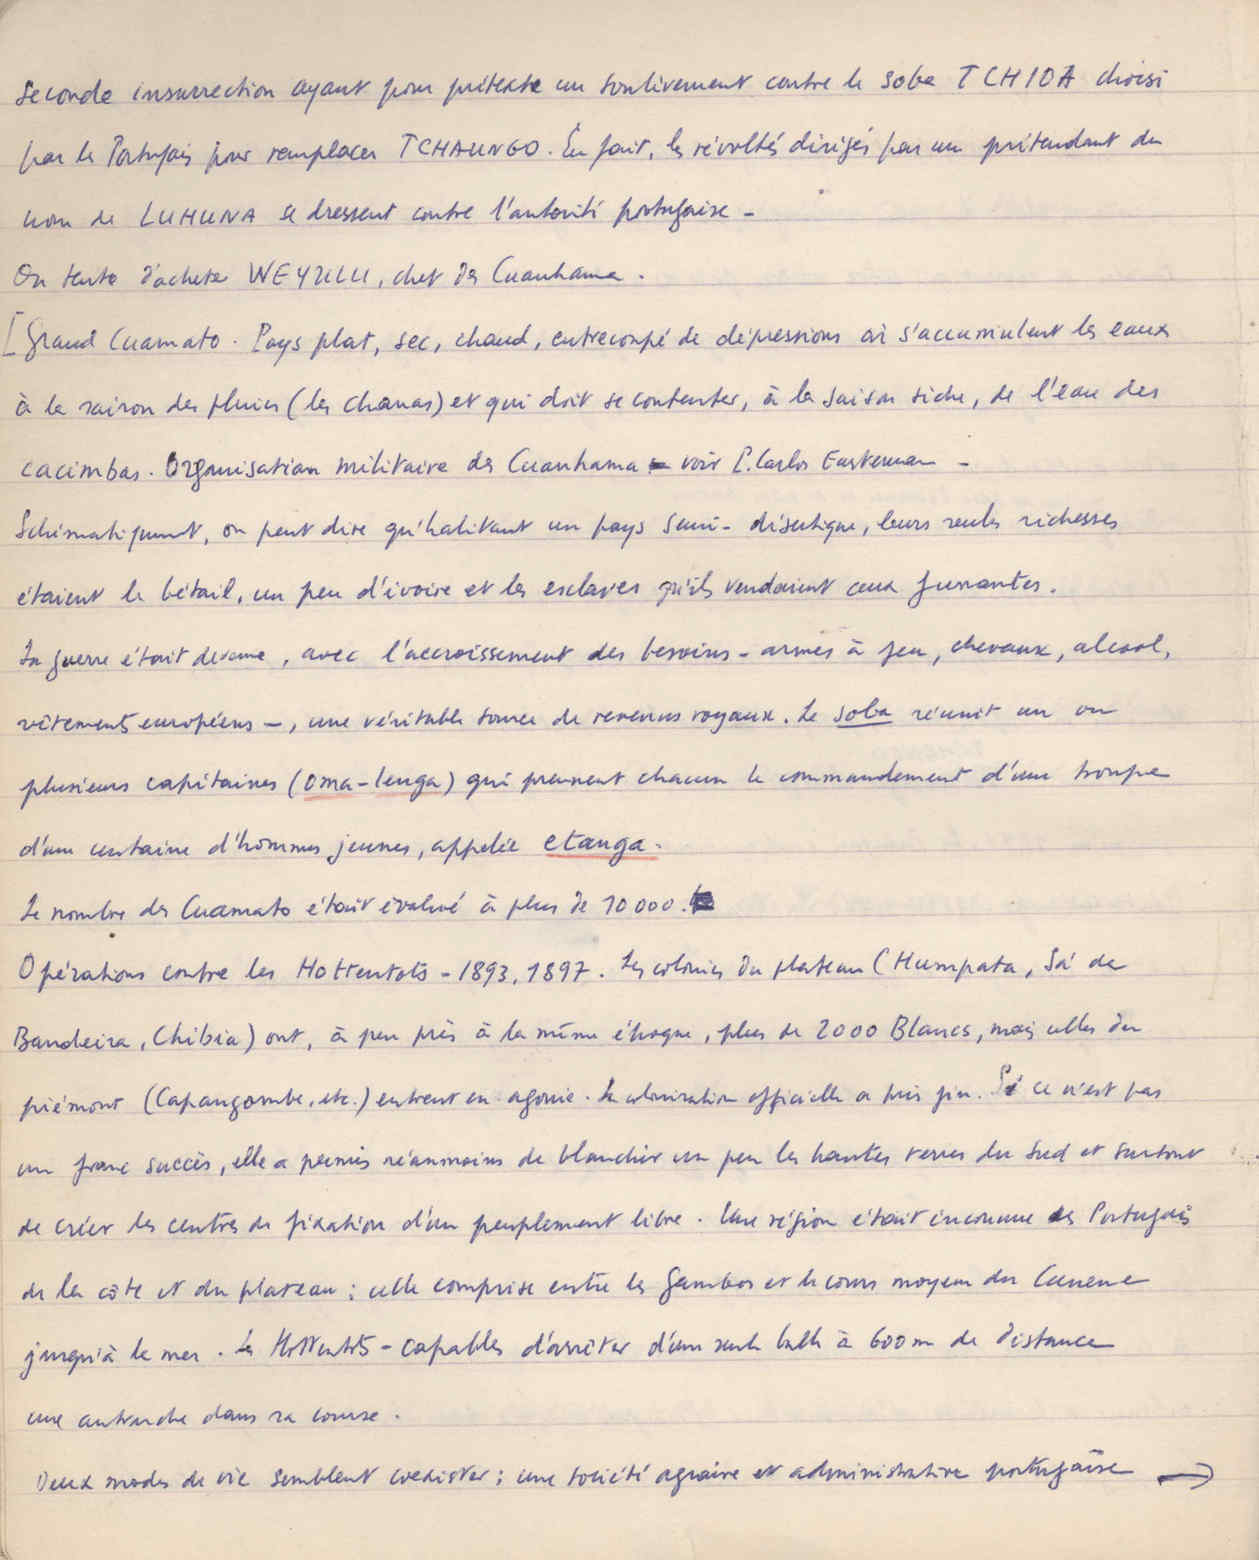 Seconde insurrection ayant pour prétexte un soulèvement contre le soba TCHIOA choisi
par les Portugais pour remplacer TCHAUNGO. En fait, les révoltés dirigés par un prétendant du
nom de LUHUNA se dressent contre l'autorité portugaise -
On tente d'acheter WEYULU, chef des Cuanhama.
[Grand Cuamato. Pays plat, sec, chaud, entrecoupé de dépressions où s'accumulent les eaux
à la saison des pluies (les chanas) et qui doit se contenter, à la saison sèche, de l'eau des
cacimbas. Organisation militaire des Cuanhama - voir P. Carlos Estermann -
Schématiquement, on peut dire qu'habitant un pays semi-désertique, leurs seules richesses
étaient le bétail, un peu d'ivoire et les esclaves qu'ils vendaient aux funantes.
La guerre était devenue, avec l'accroissement des besoins - armes à feu, chevaux, alcool,
vêtements européens -, une véritable source de revenus royaux. Le soba réunit un ou
plusieurs capitaines (oma-lenga) qui prennent chacun le commandement d'une troupe
d'une centaine d'hommes jeunes, appelée etanga.
Le nombre des Cuamato était évalué à plus de 10 000.
Opérations contre les Hottentots - 1893, 1897. Les colonies du plateau (Humpata, Sá de
Bandeira, Chibia) ont, à peu près à la même époque, plus de 2000 Blancs, mais celles du
piémont (Capangombe, etc.) entrent en agonie. La colonisation officielle a pris fin. Si ce n'est pas
un franc succès, elle a permis néanmoins de blanchir un peu les hautes terres du Sud et surtout
de créer des centres de fixation d'un peuplement libre. Une région était inconnue des Portugais
de la côte et du plateau : celle comprise entre les Gambos et le cours moyen du Cunene
jusqu'à la mer. Les Hottentots - capables d'arrêter d'une seule balle à 600 m de distance
une autruche dans sa course.
Deux modes de vie semblent coexister : une société agraire et administrative portugaise →